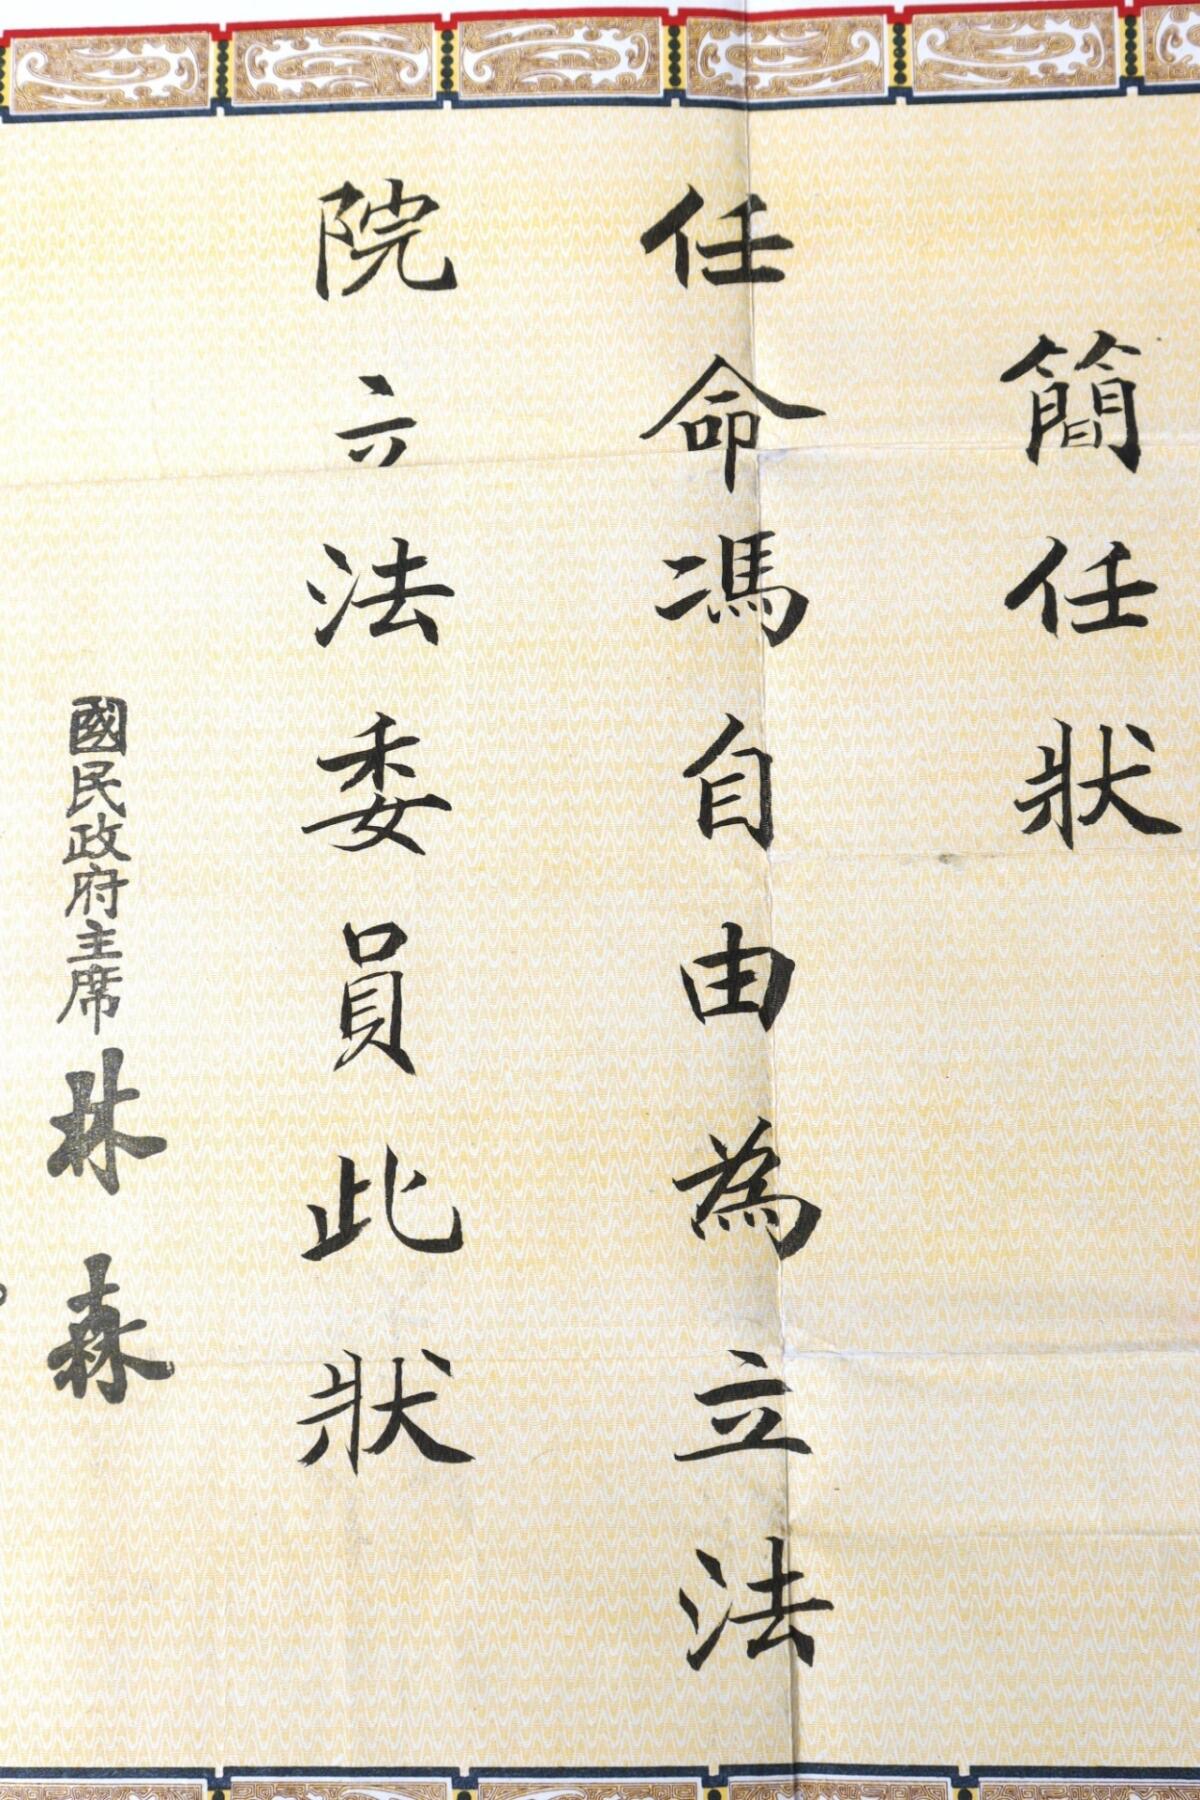 簡任狀
任命馮自由為立法
院立法委員此狀
國民政府主席林森